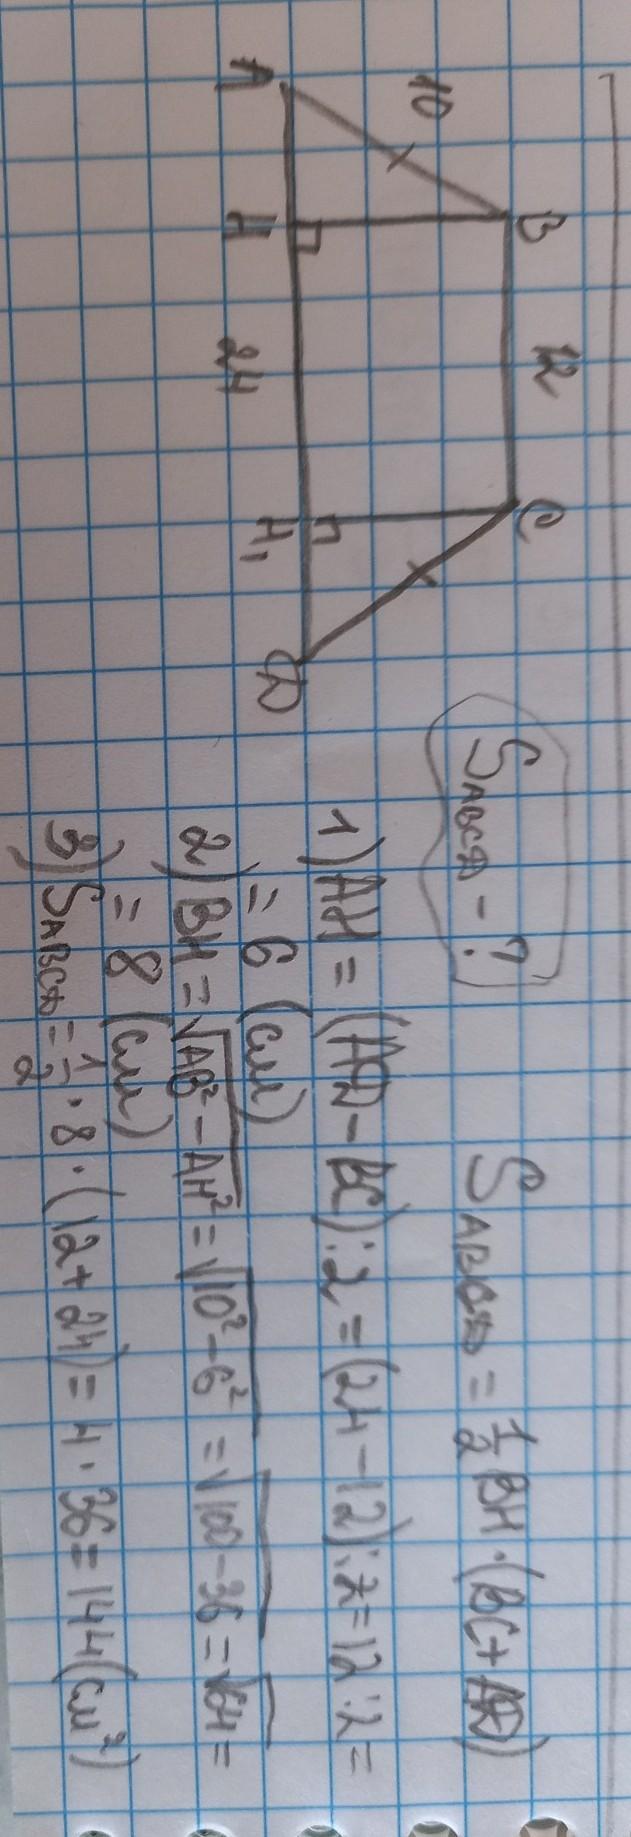 B 12 C
10
A H 24 H₁ D
S_ABCD - ?
S_ABCD = 1/2 BH · (BC + AD)
1) AH = (AD - BC) : 2 = (24 - 12) : 2 = 12 : 2 =
= 6 (см)
2) BH = √AB² - AH² = √10² - 6² = √100 - 36 = √64 =
= 8 (см)
3) S_ABCD = 1/2 · 8 · (12 + 24) = 4 · 36 = 144 (см²)